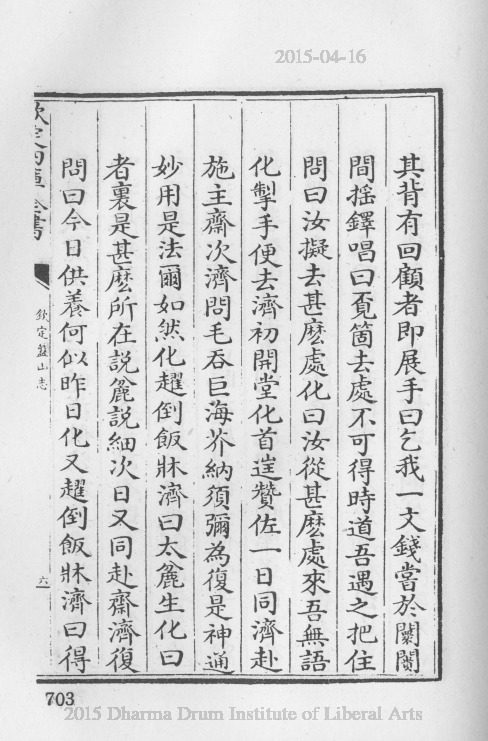 2015-04-16
其背有回顧者即展手曰乞我一文錢嘗於闤闠
間搖鐸唱曰覔箇去處不可得時道吾遇之把住
問曰汝擬去甚麽處化曰汝從甚麽處來吾無語
化掣手便去濟初開堂化首遑贊佐一日同濟赴
施主齋次濟問毛吞巨海芥納須彌為復是神通
妙用是法爾如然化趯倒飯牀濟曰太麄生化曰
者裏是甚麽所在說麄說細次日又同赴齋濟復
問曰今日供養何似昨日化又趯倒飯牀濟曰得
欽定四庫全書
欽定盤山志
六
703
2015 Dharma Drum Institute of Liberal Arts